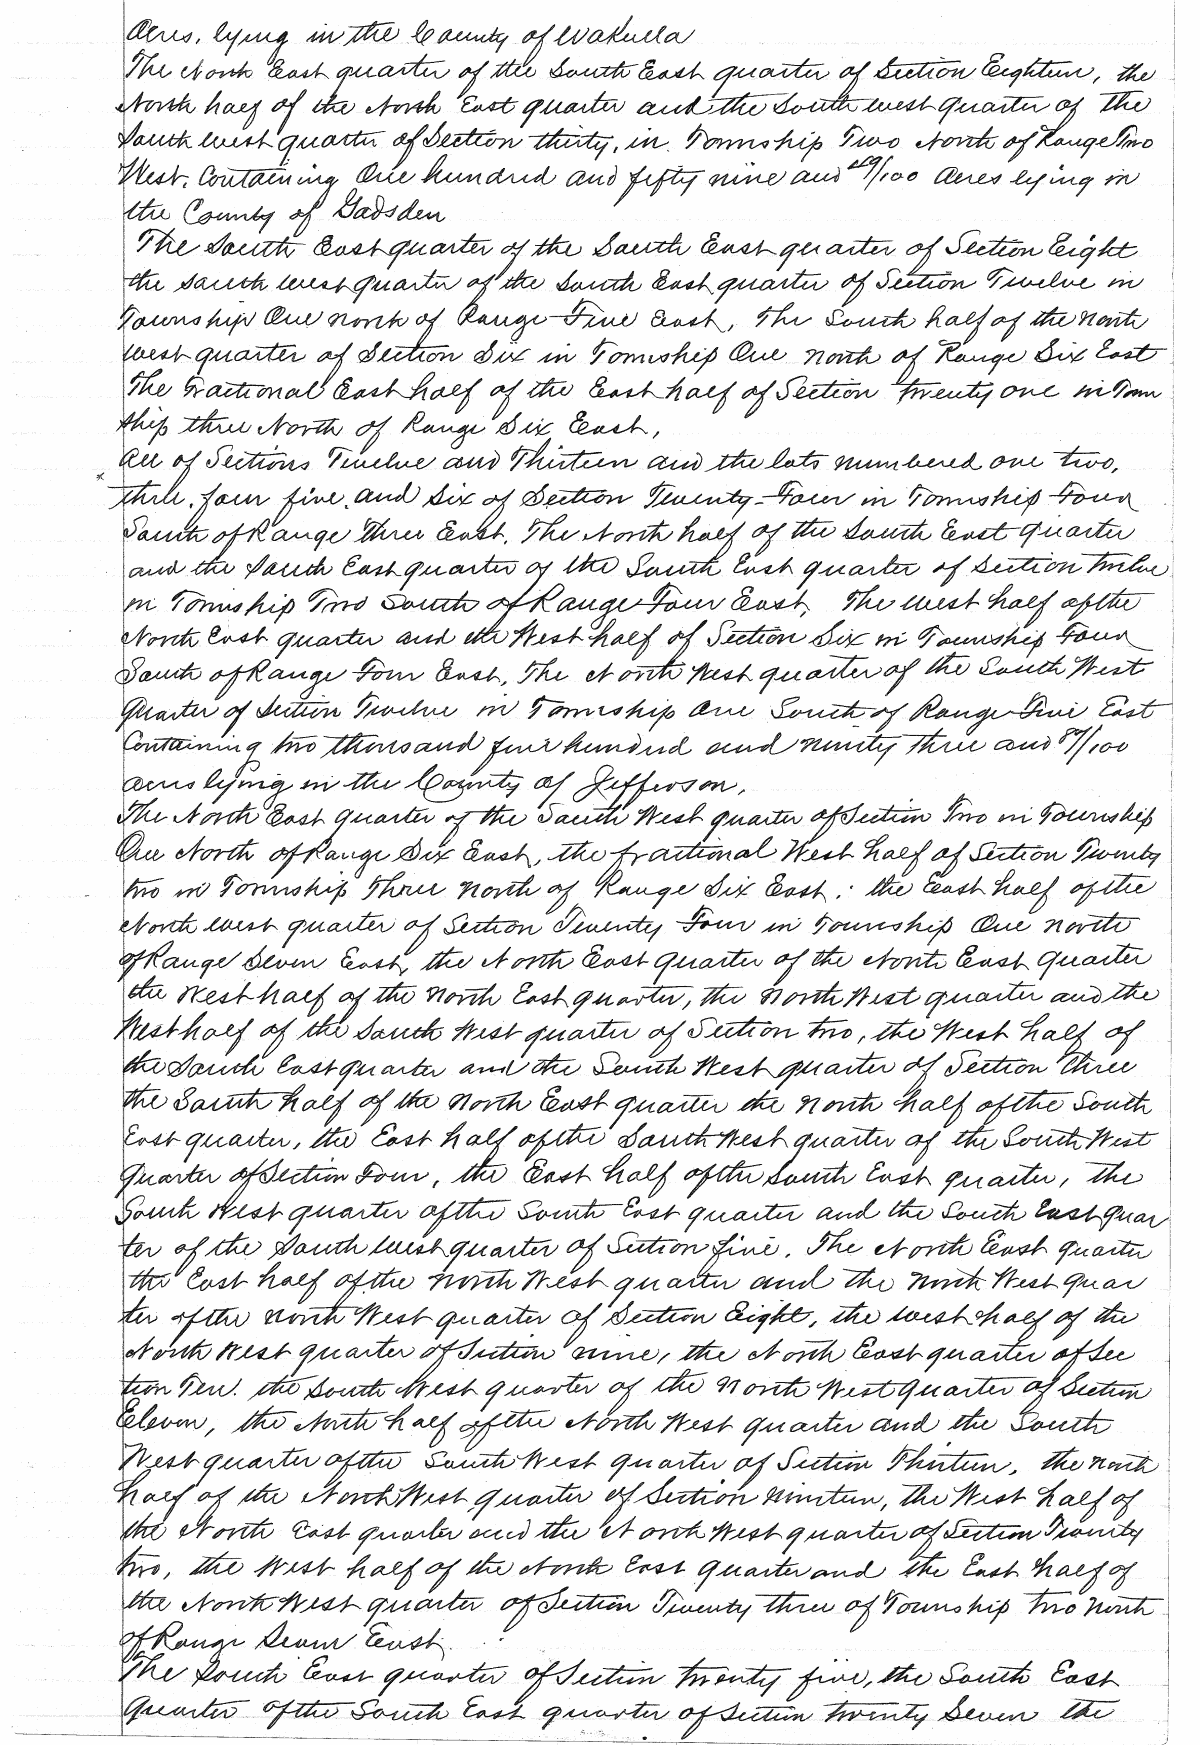 Acres, lying in the County of Wakulla
The North East quarter of the South East quarter of Section Eighteen, the
North half of the North East quarter and the South west quarter of the
South west quarter of Section thirty, in Township Two North of Range Two
West, Containing One hundred and fifty nine and /100 Acres lying in
the County of Gadsden
The South East quarter of the South East quarter of Section Eight
the south west quarter of the South East quarter of Section Twelve in
Township One north of Range Five East, The South half of the north
west quarter of Section Six in Township One north of Range Six East
The Fractional East half of the East half of Section twenty one in Town
ship three North of Range Six East,
All of Sections Twelve and Thirteen and the lots numbered one two,
three, four five, and Six of Section Twenty-Four in Township Four
South of Range three East. The North half of the South East quarter
and the South East quarter of the South East quarter of Section twelve
in Township Two South of Range Four East, The west half of the
North East quarter and the West half of Section Six in Township Four
South of Range Four East, The North West quarter of the South West
Quarter of Section Twelve in Township One South of Range Five East
Containing two thousand five hundred and ninety three and /100
acres lying in the County of Jefferson.
The North East quarter of the South West quarter of Section Two in Township
One North of Range Six East, the fractional West half of Section Twenty
two in Township Three north of Range Six East: the East half of the
North west quarter of Section Twenty Four in Township One north
of Range Seven East, the North East quarter of the North East quarter
the West half of the North East quarter, the North West quarter and the
West half of the South West quarter of Section two, the West half of
the South East quarter and the South West quarter of Section three
the South half of the North East quarter the north half of the South
East quarter, the East half of the South West quarter of the South West
quarter of Section Four, the East half of the South East quarter, the
South West quarter of the South East quarter and the South East quar
ter of the South west quarter of Section five. The North East quarter
the East half of the North West quarter and the North West quar
ter of the north West quarter of Section Eight, the west half of the
North West quarter of Section nine, the North East quarter of Sec
tion Ten. the South West quarter of the North West quarter of Section
Eleven, the North half of the North West quarter and the South
West quarter of the South West quarter of Section Thirteen, the north
half of the North West quarter of Section nineteen, the West half of
the North East quarter and the North West quarter of Section Twenty
two, the West half of the North East quarter and the East half of
the North West quarter of Section Twenty three of Township two North
of Range Seven East.
The South East quarter of Section twenty five, the South East
quarter of the South East quarter of Section twenty Seven the